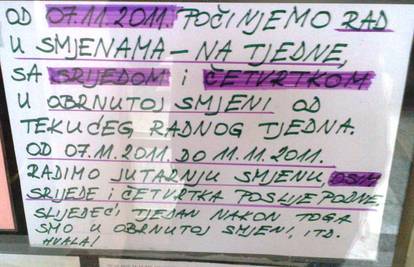 OD 07.11.2011. POČINJEMO RAD
U SMJENAMA – NA TJEDNE,
SA SRIJEDOM i ČETVRTKOM
U OBRNUTOJ SMJENI OD
TEKUĆEG RADNOG TJEDNA.
OD 07.11.2011. DO 11.11.2011.
RADIMO JUTARNJU SMJENU, OSIM
SRIJEDE i ČETVRTKA POSLIJE PODNE.
SLJEDEĆI TJEDAN NAKON TOGA
SMO U OBRNUTOJ SMJENI, ITD.
HVALA!